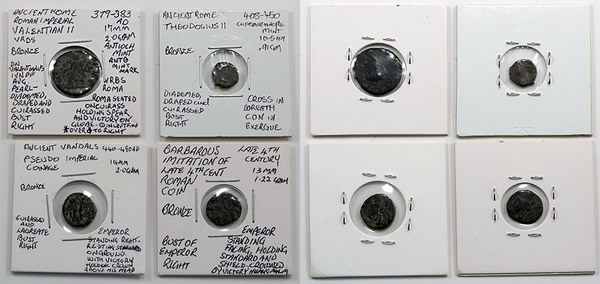 ANCIENT ROME 379-383
ROMAN IMPERIAL AD
VALENTIAN II 17MM
VRBS 2.0GRM
BRONZE ANTIOCH
MINT
ANTΘ
MINT
MARK
DN
VALENTINIANUS
IVN PF
AVG
PEARL-
DIADEMED,
DRAPED AND
CUIRASSED
BUST
RIGHT
VRBS
ROMA
ROMA SEATED
ON CUIRASS
HOLDING SPEAR
AND VICTORY ON
GLOBE. IN LEFT FIELD
OVER TO RIGHT
ANCIENT ROME 408-450
THEODOSIUS II
MINT
BRONZE 10.5MM
.91GM
DIADEMED,
DRAPED and
CUIRASSED
BUST
RIGHT
CROSS IN
WREATH
CON IN
EXERGUE
ANCIENT VANDALS 440-490AD
PSEUDO IMPERIAL 14MM
COINAGE 2.0GRM
BRONZE
CUIRASSED
AND
LAUREATE
BUST
RIGHT
EMPEROR
STANDING RIGHT.
RESTING STANDARD
ON GROUND
WITH VICTORY
HOLDING CROWN
ABOVE HIS HEAD
BARBAROUS LATE 4TH
IMITATION OF CENTURY
LATE 4TH CENT 13MM
ROMAN 1.22 GRM
COIN
BRONZE
BUST OF
EMPEROR
RIGHT
EMPEROR
STANDING
FACING, HOLDING
STANDARD AND
SHIELD. CROWNED
BY VICTORY HOLDING PALM